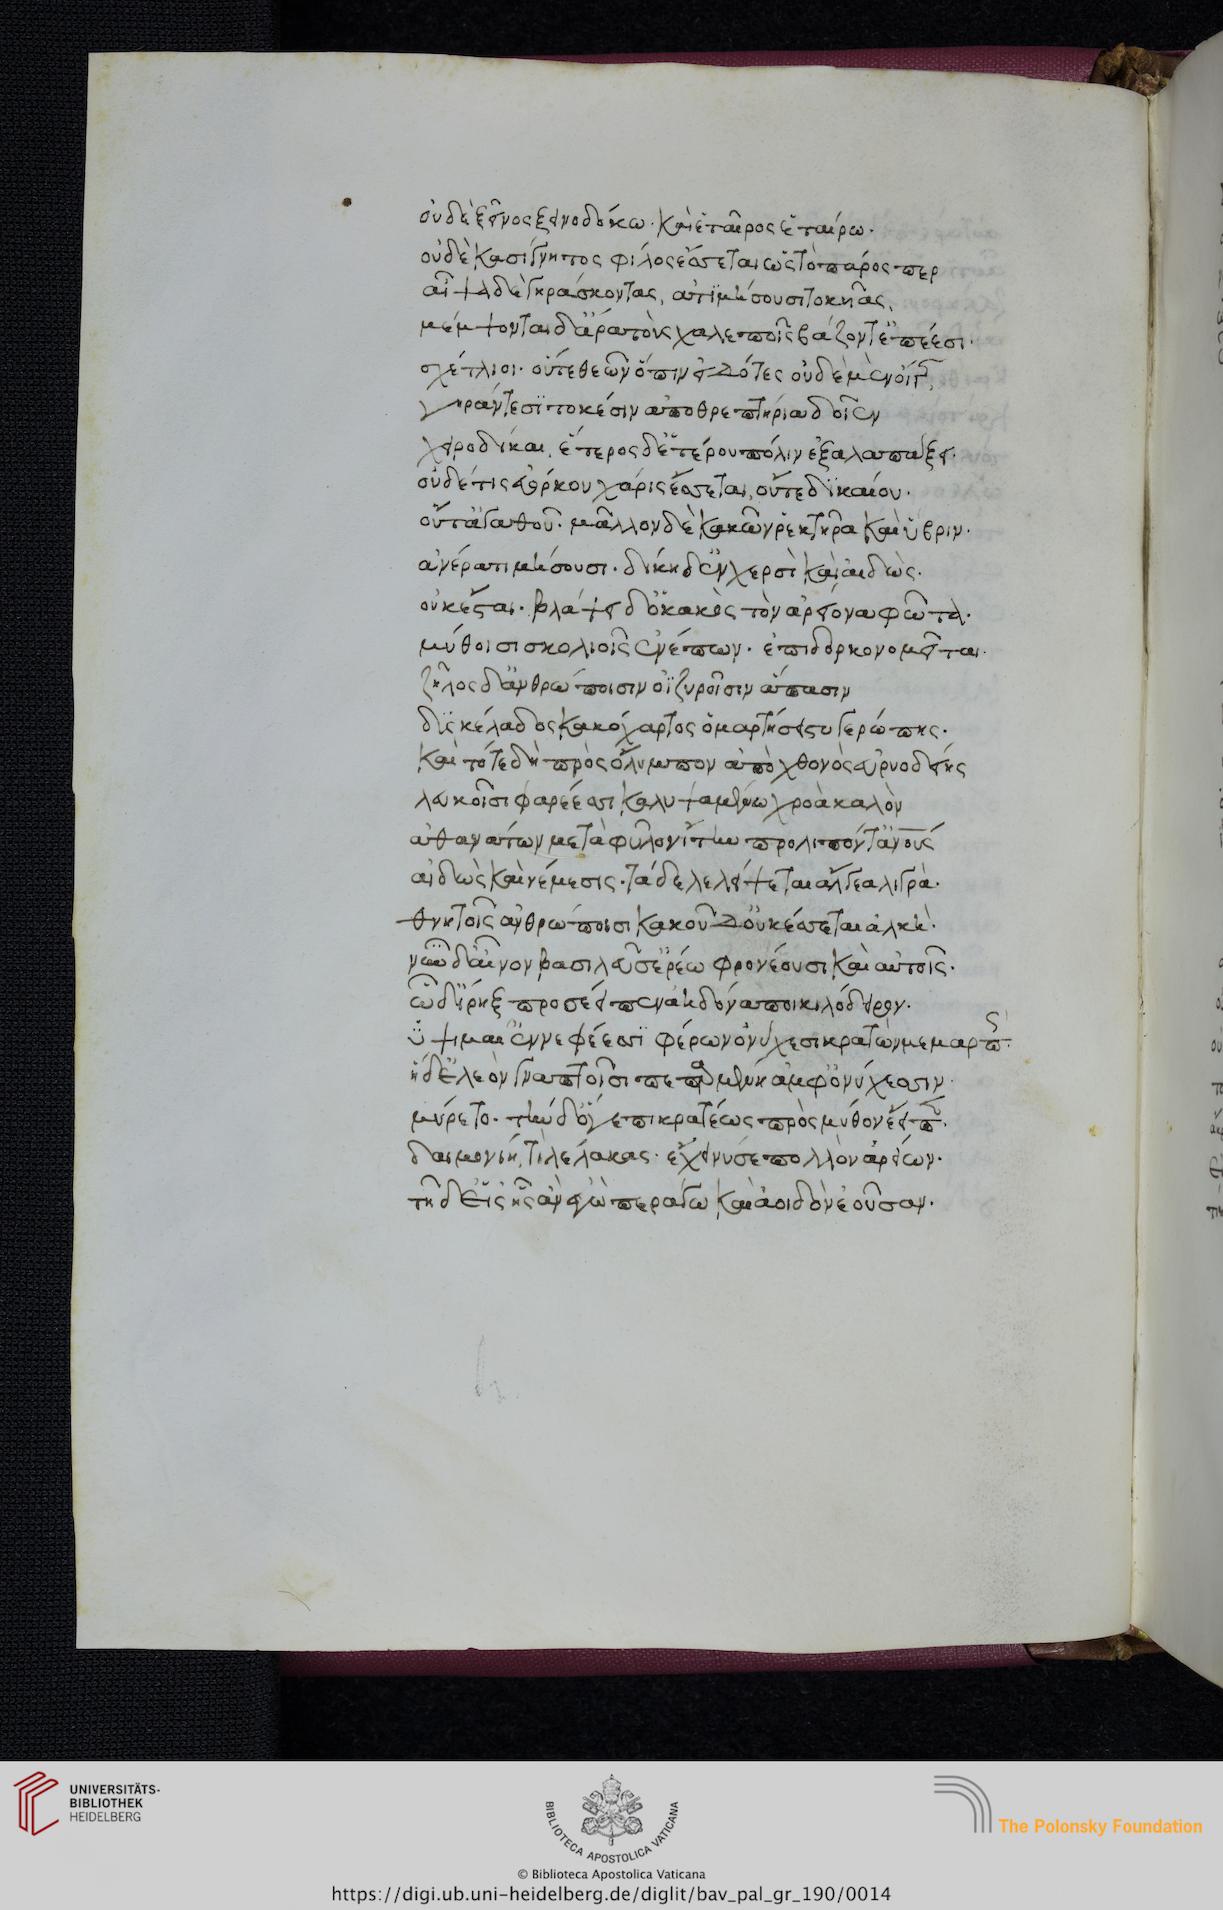 οὐδὲ ξεῖνος ξεινοδόκω. καὶ ἑταῖρος ἑταίρω.
οὐδὲ κασίγνητος φίλος ἔσσεται ὡς τὸ πάρος περ
αἶψα δὲ γηράσκοντας, ἀτιμήσουσι τοκῆας,
μέμψονται δ' ἄρα τοὺς χαλεποῖς βάζοντ' ἐπέεσι.
σχέτλιοι. οὔτε θεῶν ὄπιν εἰδότες οὐδὲ μὲν οἵγε
γηράντεσι τοκέσιν ἀπὸ θρεπτήρια δοῖεν
χειροδίκαι, ἕτερος δ' ἑτέρου πόλιν ἐξαλαπάξει.
οὐδέ τις εὐόρκου χάρις ἔσσεται, οὔτε δικαίου.
οὔτ' ἀγαθοῦ. μᾶλλον δὲ κακῶν ῥεκτῆρα καὶ ὕβριν.
ἀνέρα τιμήσουσι. δίκη δ' ἐν χερσὶ καὶ αἰδὼς.
οὐκ ἔσται. βλάψει δ' ὁ κακὸς τὸν ἀρείονα φῶτα.
μύθοισι σκολιοῖς ἐνέπων. ἐπὶ δ' ὅρκον ὀμεῖται.
ζῆλος δ' ἀνθρώποισιν ὀϊζυροῖσιν ἅπασιν
δϊσκέλαδος κακόχαρτος ὁμαρτήσει στυγερώπης.
καὶ τότε δὴ πρὸς ὄλυμπον ἀπὸ χθονὸς εὐρυοδείης
λευκοῖσι φαρέεσσι καλυψαμένω χρόα καλὸν
ἀθανάτων μετὰ φῦλον ἴτην προλιπόντ' ἀνους
αἰδὼς καὶ νέμεσις. τὰ δὲ λελείψεται ἄλγεα λιγρὰ.
θνητοῖς ἀνθρώποισι κακοῦ δ' οὐκ ἔσσεται ἀλκὴ.
νῦν δ' αἶνον βασιλεῦσ' ἐρέω φρονέουσι καὶ αὐτοῖς.
ὧδ' ἴρηξ προσέειπεν ἀηδόνα ποικιλόδειρον.
ὕψι μάλ' ἐν νεφέεσσι φέρων ὀνύχεσι κρατῶν μεμαρπς.
ἡ δ' ἔλεον γναπτοῖσι πεπαρμένη ἀμφ' ὀνύχεσσιν.
μύρετο. τὴν δ' ὅγ' ἐπικρατέως πρὸς μῦθον ἔειπ.
δαιμονίη, τί λέλακας. ἔχει νύ σε πολλὸν ἀρείων.
τῇ δ' εἶς ᾗ σ' ἂν ἐγὼ περ ἄγω καὶ ἀοιδὸν ἐοῦσαν.
UNIVERSITÄTS-
BIBLIOTHEK
HEIDELBERG
BIBLIOTECA APOSTOLICA VATICANA
The Polonsky Foundation
© Biblioteca Apostolica Vaticana
https://digi.ub.uni-heidelberg.de/diglit/bav_pal_gr_190/0014